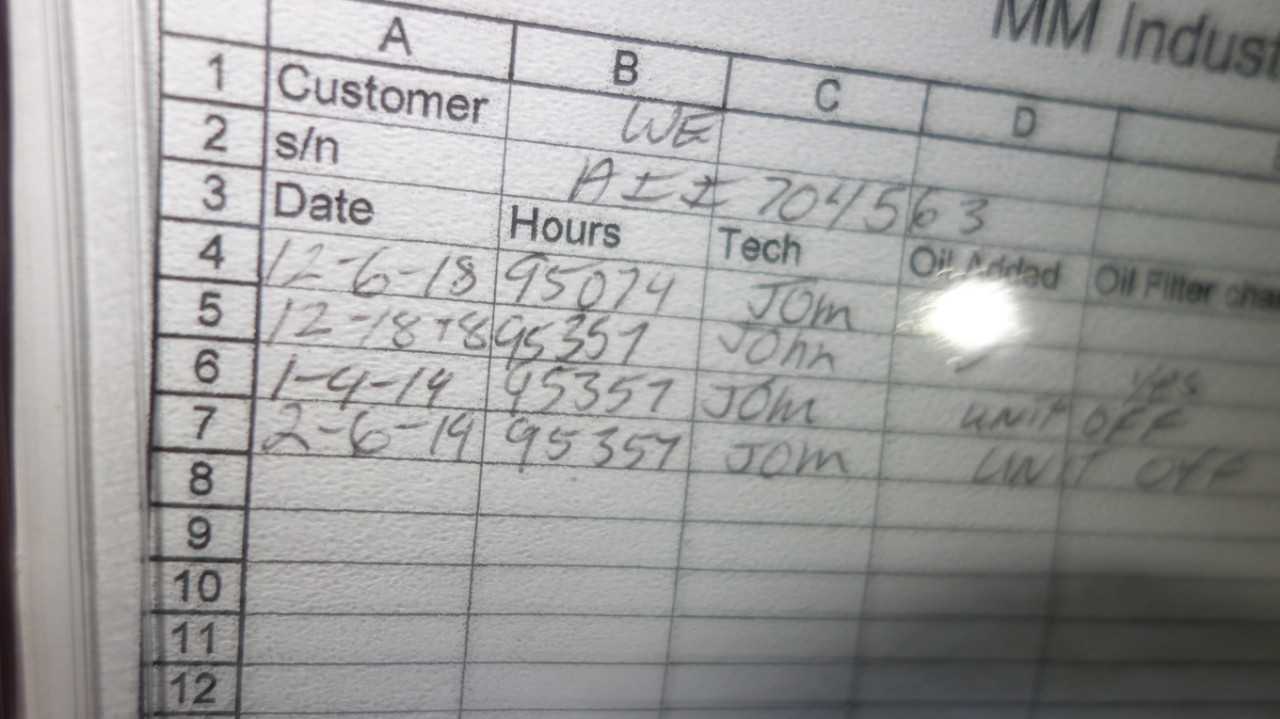 MM Indust
A B C D
1 Customer WE
2 s/n AII704563
3 Date Hours Tech Oil Added Oil Filter cha
4 12-6-18 95074 JOm
5 12-18-18 95357 JOhn yes
6 1-4-19 95357 JOm UNIT OFF
7 2-6-19 95357 JOm UNIT OFF
8
9
10
11
12